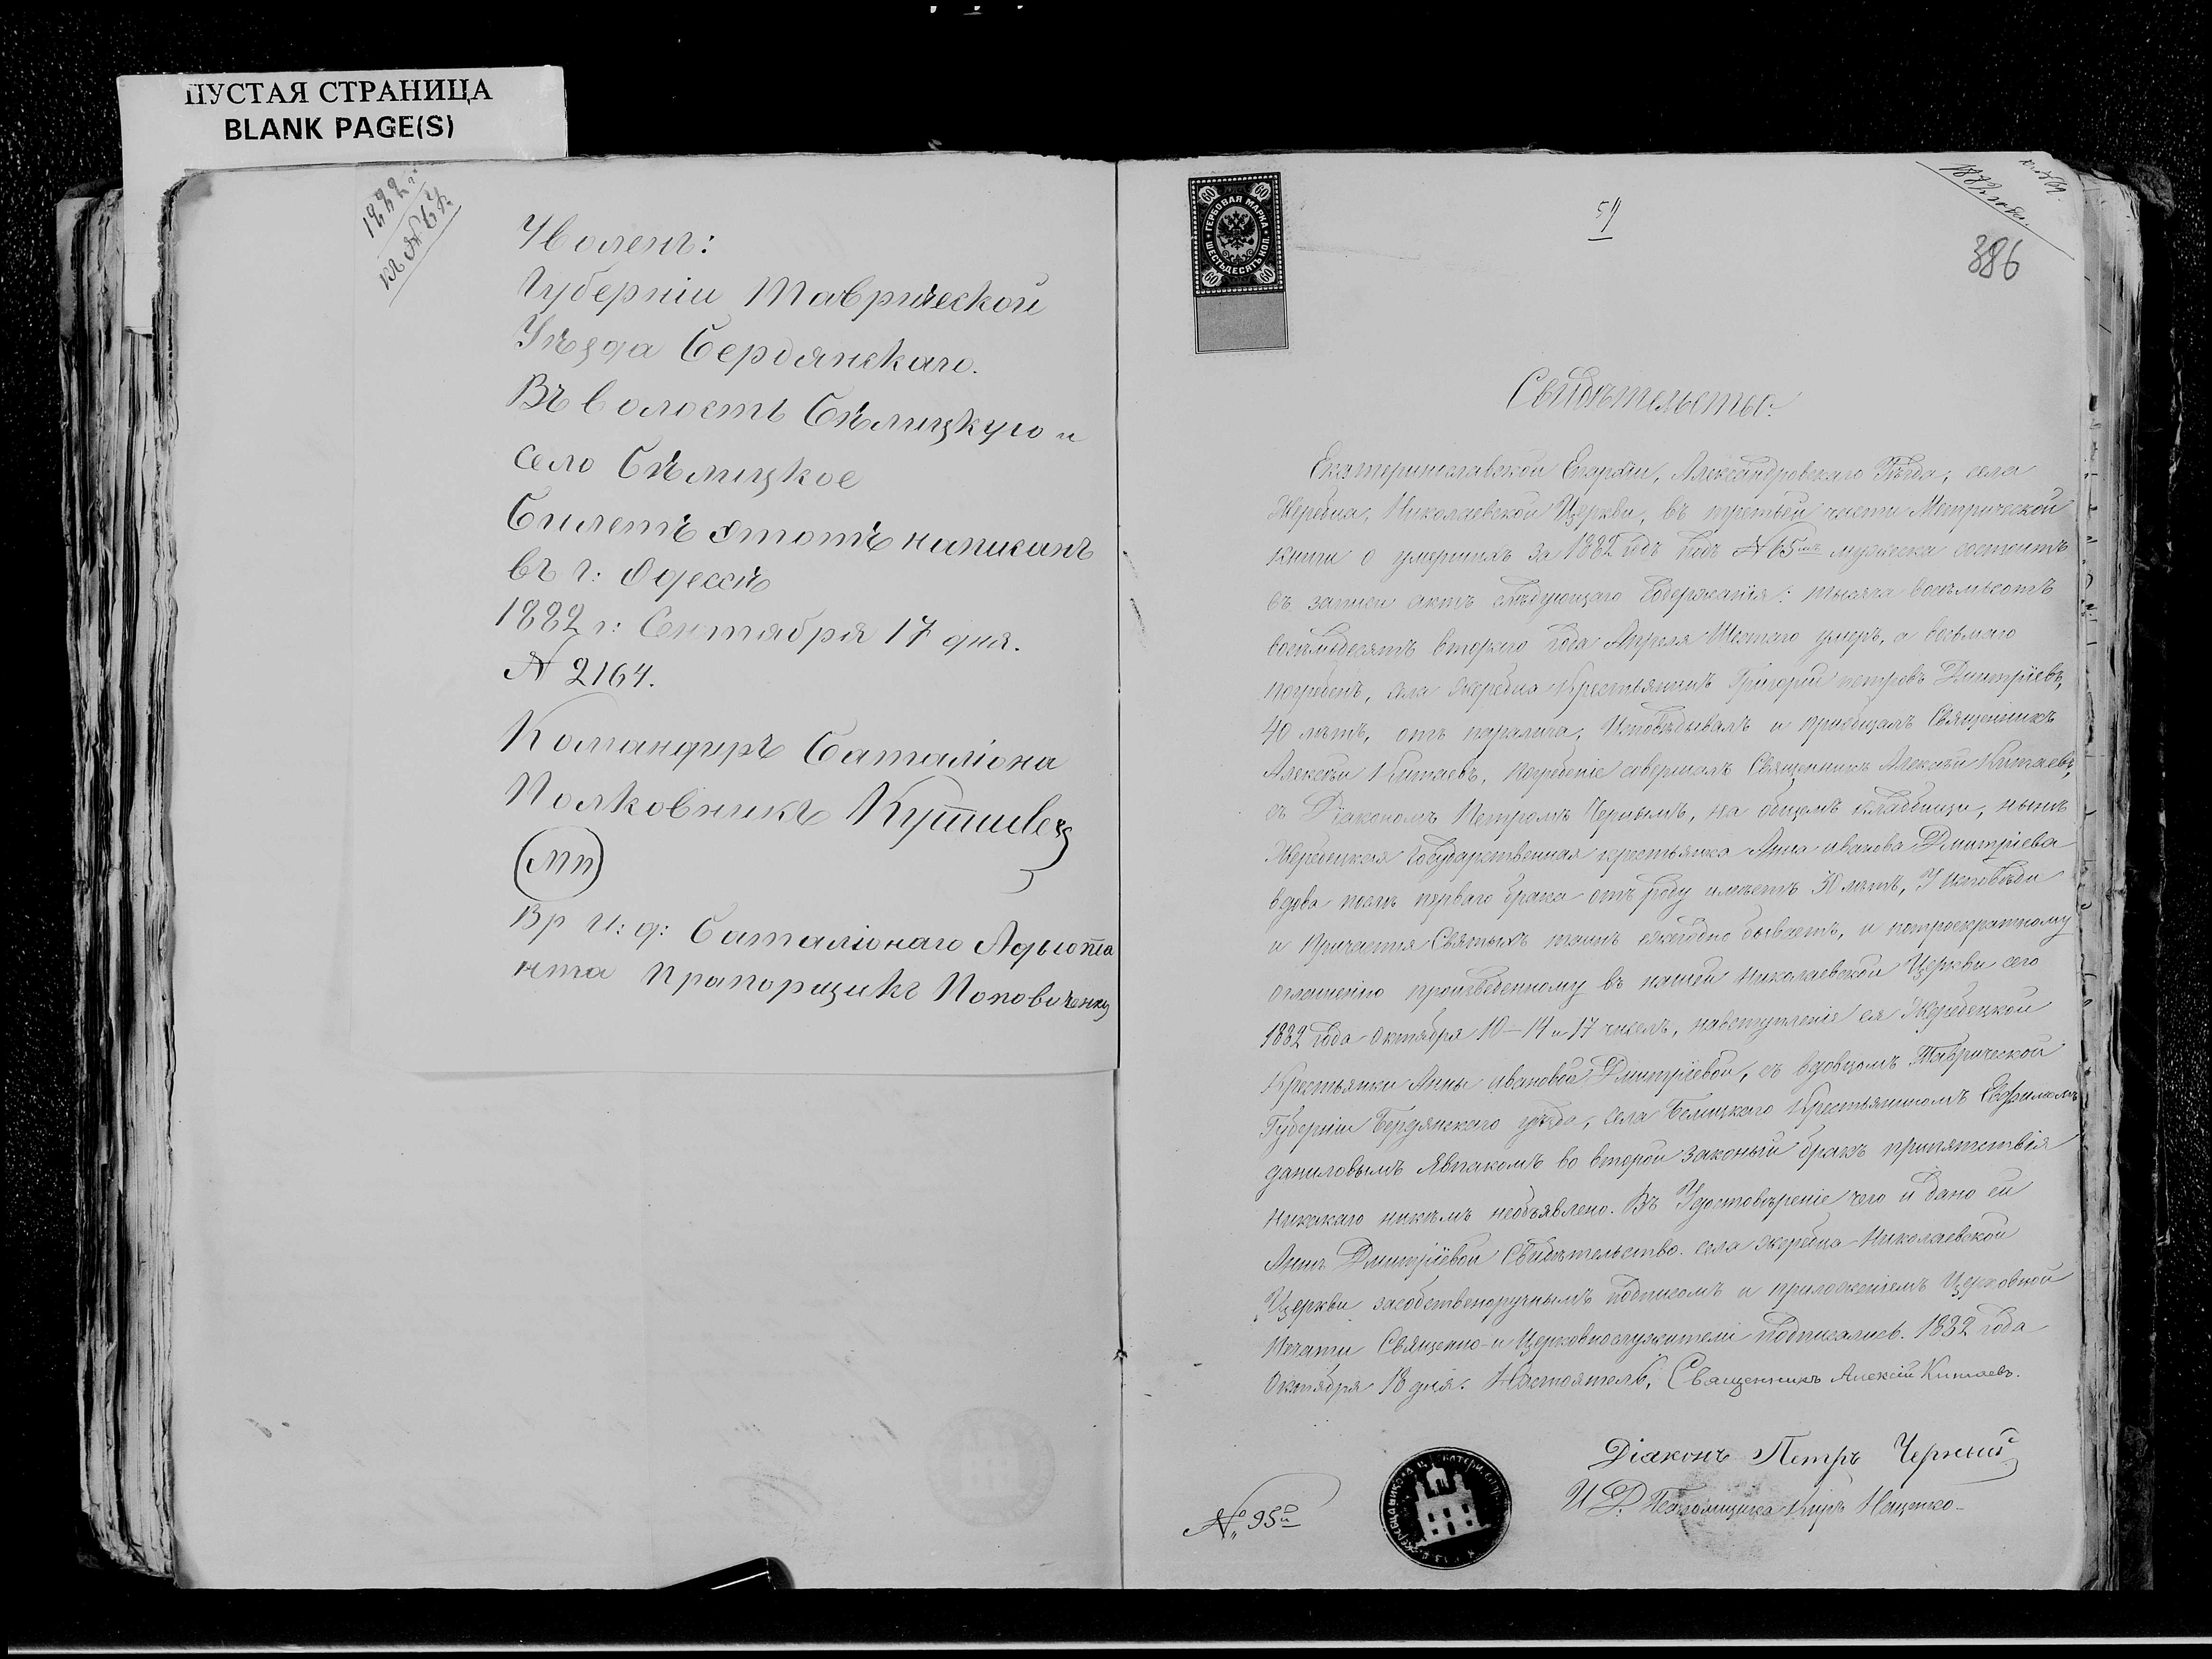 ПУСТАЯ СТРАНИЦА
BLANK PAGE(S)
1882 г.
къ № 64
Уволенъ:
Губерніи Таврической
Уѣзда Бердянскаго.
Въ волость Бѣлицкую и
село Бѣлицкое
Билетъ этотъ написанъ
въ г: Одессѣ
1882 г: Сентября 17 дня.
№ 2164.
Командиръ Баталіона
Полковникъ
МП
Вр И: д: Баталіонаго Адьюта
нта Прапорщикъ Поповиченко
1882 года
54
386
60 60
ГЕРБОВАЯ МАРКА
ШЕСТЬДЕСЯТЪ КОП.
60 60
Свидѣтельство.
Екатеринославской Епархіи, Александровскаго Уѣзда, села
Жеребца, Николаевской Церкви, въ третьей части Метрической
книги о умершихъ за 1882 годъ подъ № 65мъ мужеска состоитъ
въ записи актъ слѣдующаго содержанія: тысяча восемьсотъ
восемьдесятъ втораго года Апреля Шестаго умеръ, а восьмаго
погребенъ, села Жеребца Крестьянинъ Григорій петровъ Дмитріевъ,
40 лѣтъ, отъ паралича, Исповѣдывалъ и приобщалъ Священникъ
Алексѣй Китаевъ, Погребеніе совершалъ Священникъ Алексѣй Китаевъ,
съ Діакономъ Петромъ Чернымъ, на общемъ кладбищи, нынѣ
Жеребецкая Государственная крестьянка Анна иванова Дмитріева
вдова послѣ перваго брака отъ роду имѣетъ 30 лѣтъ, У Исповѣди
и Причастія Святыхъ таинъ ежегодно бываетъ, и потроекратному
оглашенію произведенному въ нашей Николаевской Церкви сего
1882 года Октября 10-14 и 17 чиселъ, навступленіе ея Жеребецкой
Крестьянки Анны ивановой Дмитріевой, съ вдовцомъ Таврической
Губерніи Бердянскаго уѣзда, села Белицкого Крестьяниномъ
даниловымъ во второй законый бракъ припятствія
никакаго никѣмъ необъявлено. Въ Удостовѣреніе чего и дано ей
Аннѣ Дмитріевой Свидѣтельство. села Жеребца Николаевской
Церкви засобственоручнымъ подписомъ и приложеніемъ Церковной
Печати Священно-и Церковнослужители подписалисъ. 1882 года
Октября 18 дня. Настоятель, Священникъ Алексій Китаевъ.
Діаконъ Петръ Черный
И. Д. Псаломщика Нещенко
№ 95й